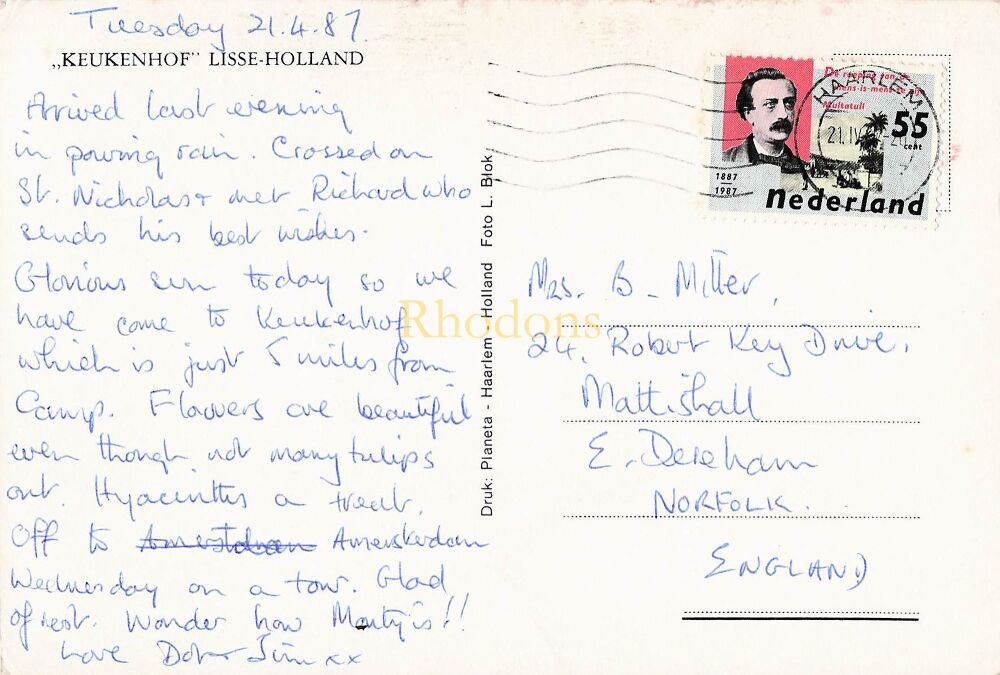 Tuesday 21.4.87.
„KEUKENHOF" LISSE-HOLLAND
Arrived last evening
in pouring rain. Crossed on
St. Nicholas & met Richard who
sends his best wishes.
Glorious sun today so we
have come to Keukenhof
which is just 5 miles from
Camp. Flowers are beautiful
even though not many tulips
out. Hyacinths a treat.
Off to Amerstdam Amerskerdam
Wednesday on a tour. Glad
of rest. Wonder how Monty is!!
Love Dot & Jim xx
Druk: Planeta - Haarlem - Holland Foto L. Blok
De roeping van de
mens is mens te zijn
Multatuli
55
cent
1887
1987
nederland
HAARLEM
21.IV
Mrs. B. Mitter,
24, Robert Key Drive,
Mattishall
E. Dereham
NORFOLK.
ENGLAND
Rhodons